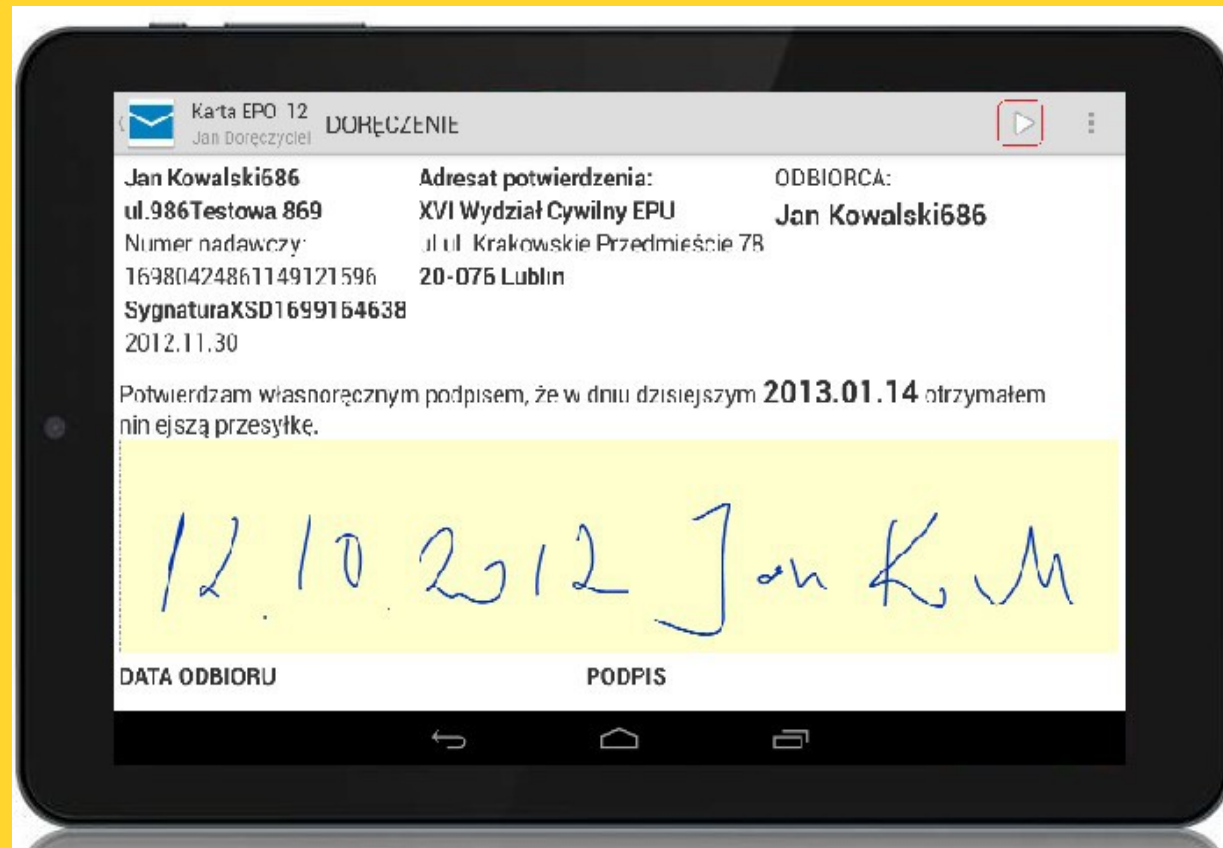 Karta EPO 12
Jan Doręczyciel
DORĘCZENIE
Jan Kowalski686
ul.986Testowa 869
Numer nadawczy:
16980424861149121596
SygnaturaXSD1699164638
2012.11.30
Adresat potwierdzenia:
XVI Wydział Cywilny EPU
ul.ul. Krakowskie Przedmieście 78
20-076 Lublin
ODBIORCA:
Jan Kowalski686
Potwierdzam własnoręcznym podpisem, że w dniu dzisiejszym 2013.01.14 otrzymałem
niniejszą przesyłkę.
12.10.2012 Jan K.M
DATA ODBIORU
PODPIS